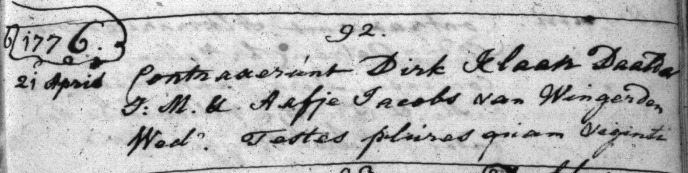 92.
1776.
21 April
Contraxerunt Dirk Klaasz Daalder
J: M. & Aafje Jacobs van Wingerden
Wed.ᵉ Testes plures quam viginti